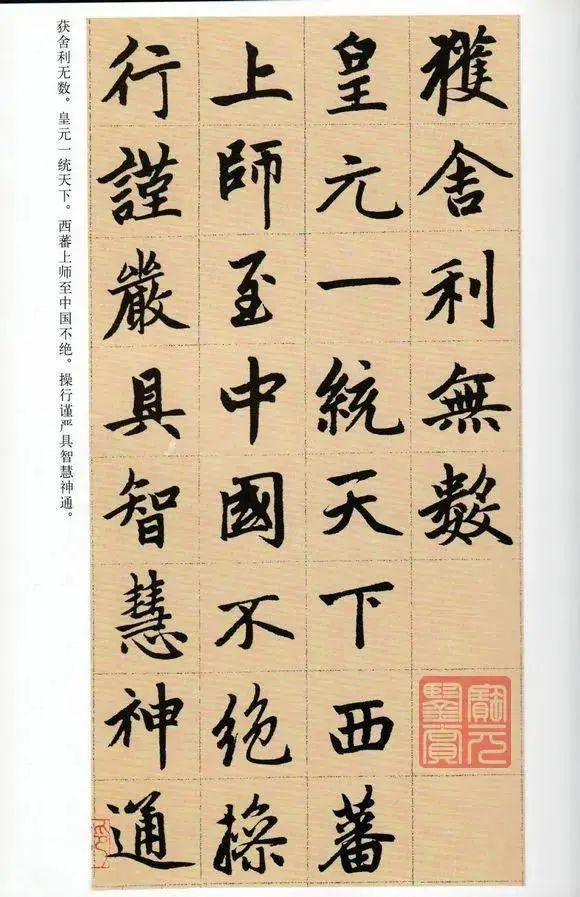 獲舍利無數
皇元一統天下西蕃
上師至中國不绝操
行謹嚴具智慧神通
获舍利无数。皇元一统天下。西蕃上师至中国不绝。操行谨严具智慧神通。